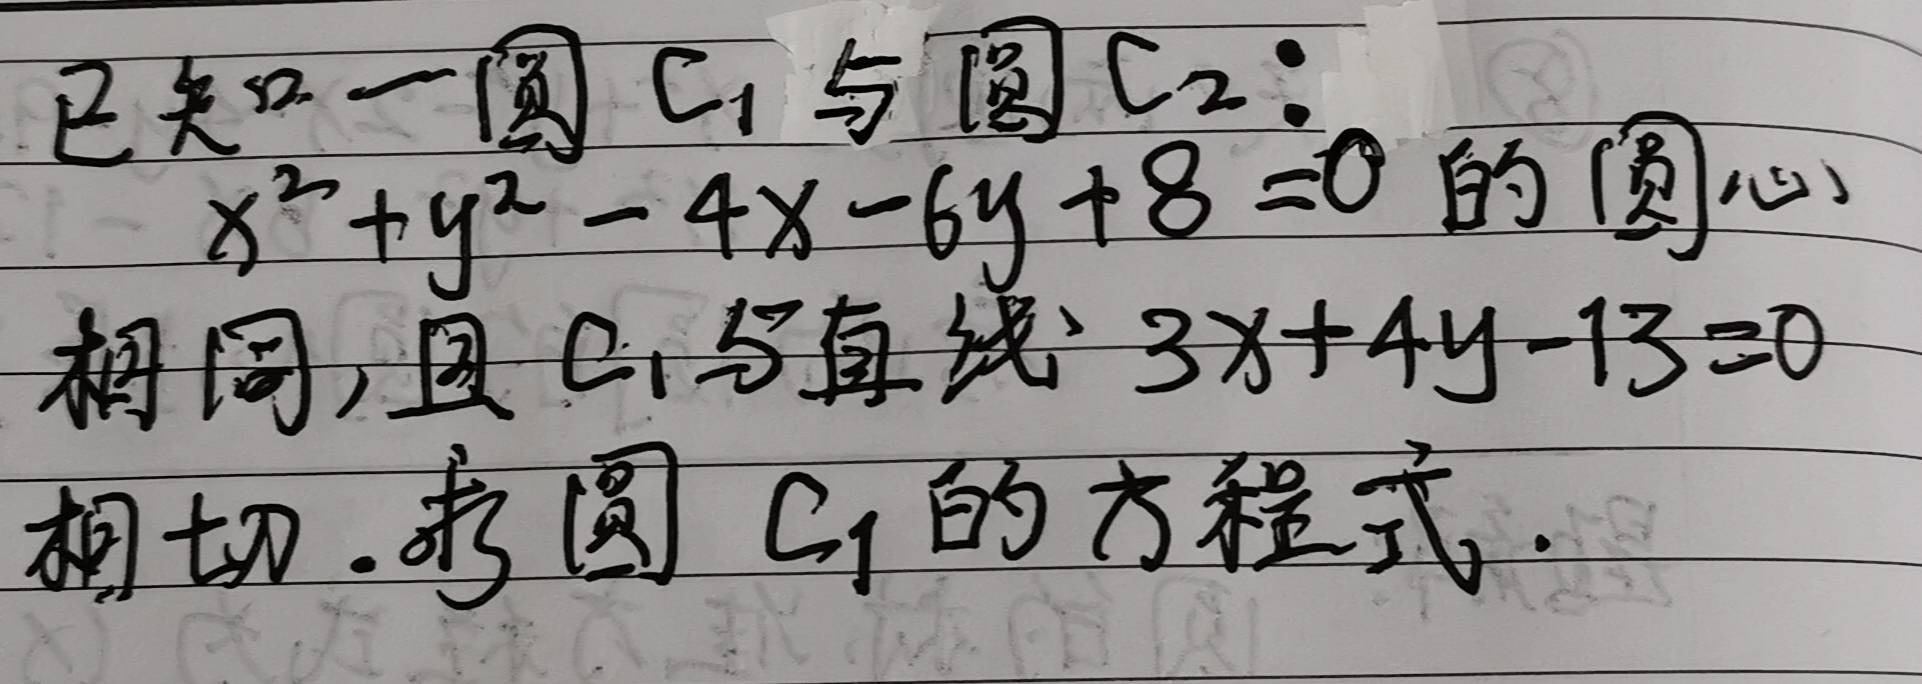 已知一圆 C₁ 与圆 C₂:
x²+y²-4x-6y+8=0 的圆心
相同,且 C₁与直线 3x+4y-13=0
相切.求圆 C₁ 的方程式.